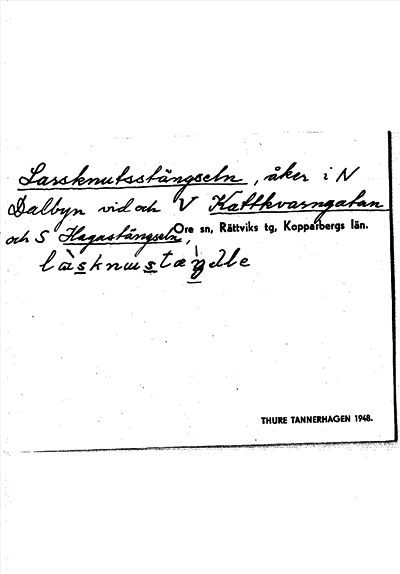 Larsknutsstängseln, åker i N
Dalbyn vid och V Kattkvarngatan
och S Hagastängseln,
Ore sn, Rättviks tg, Kopparbergs län.
THURE TANNERHAGEN 1948.